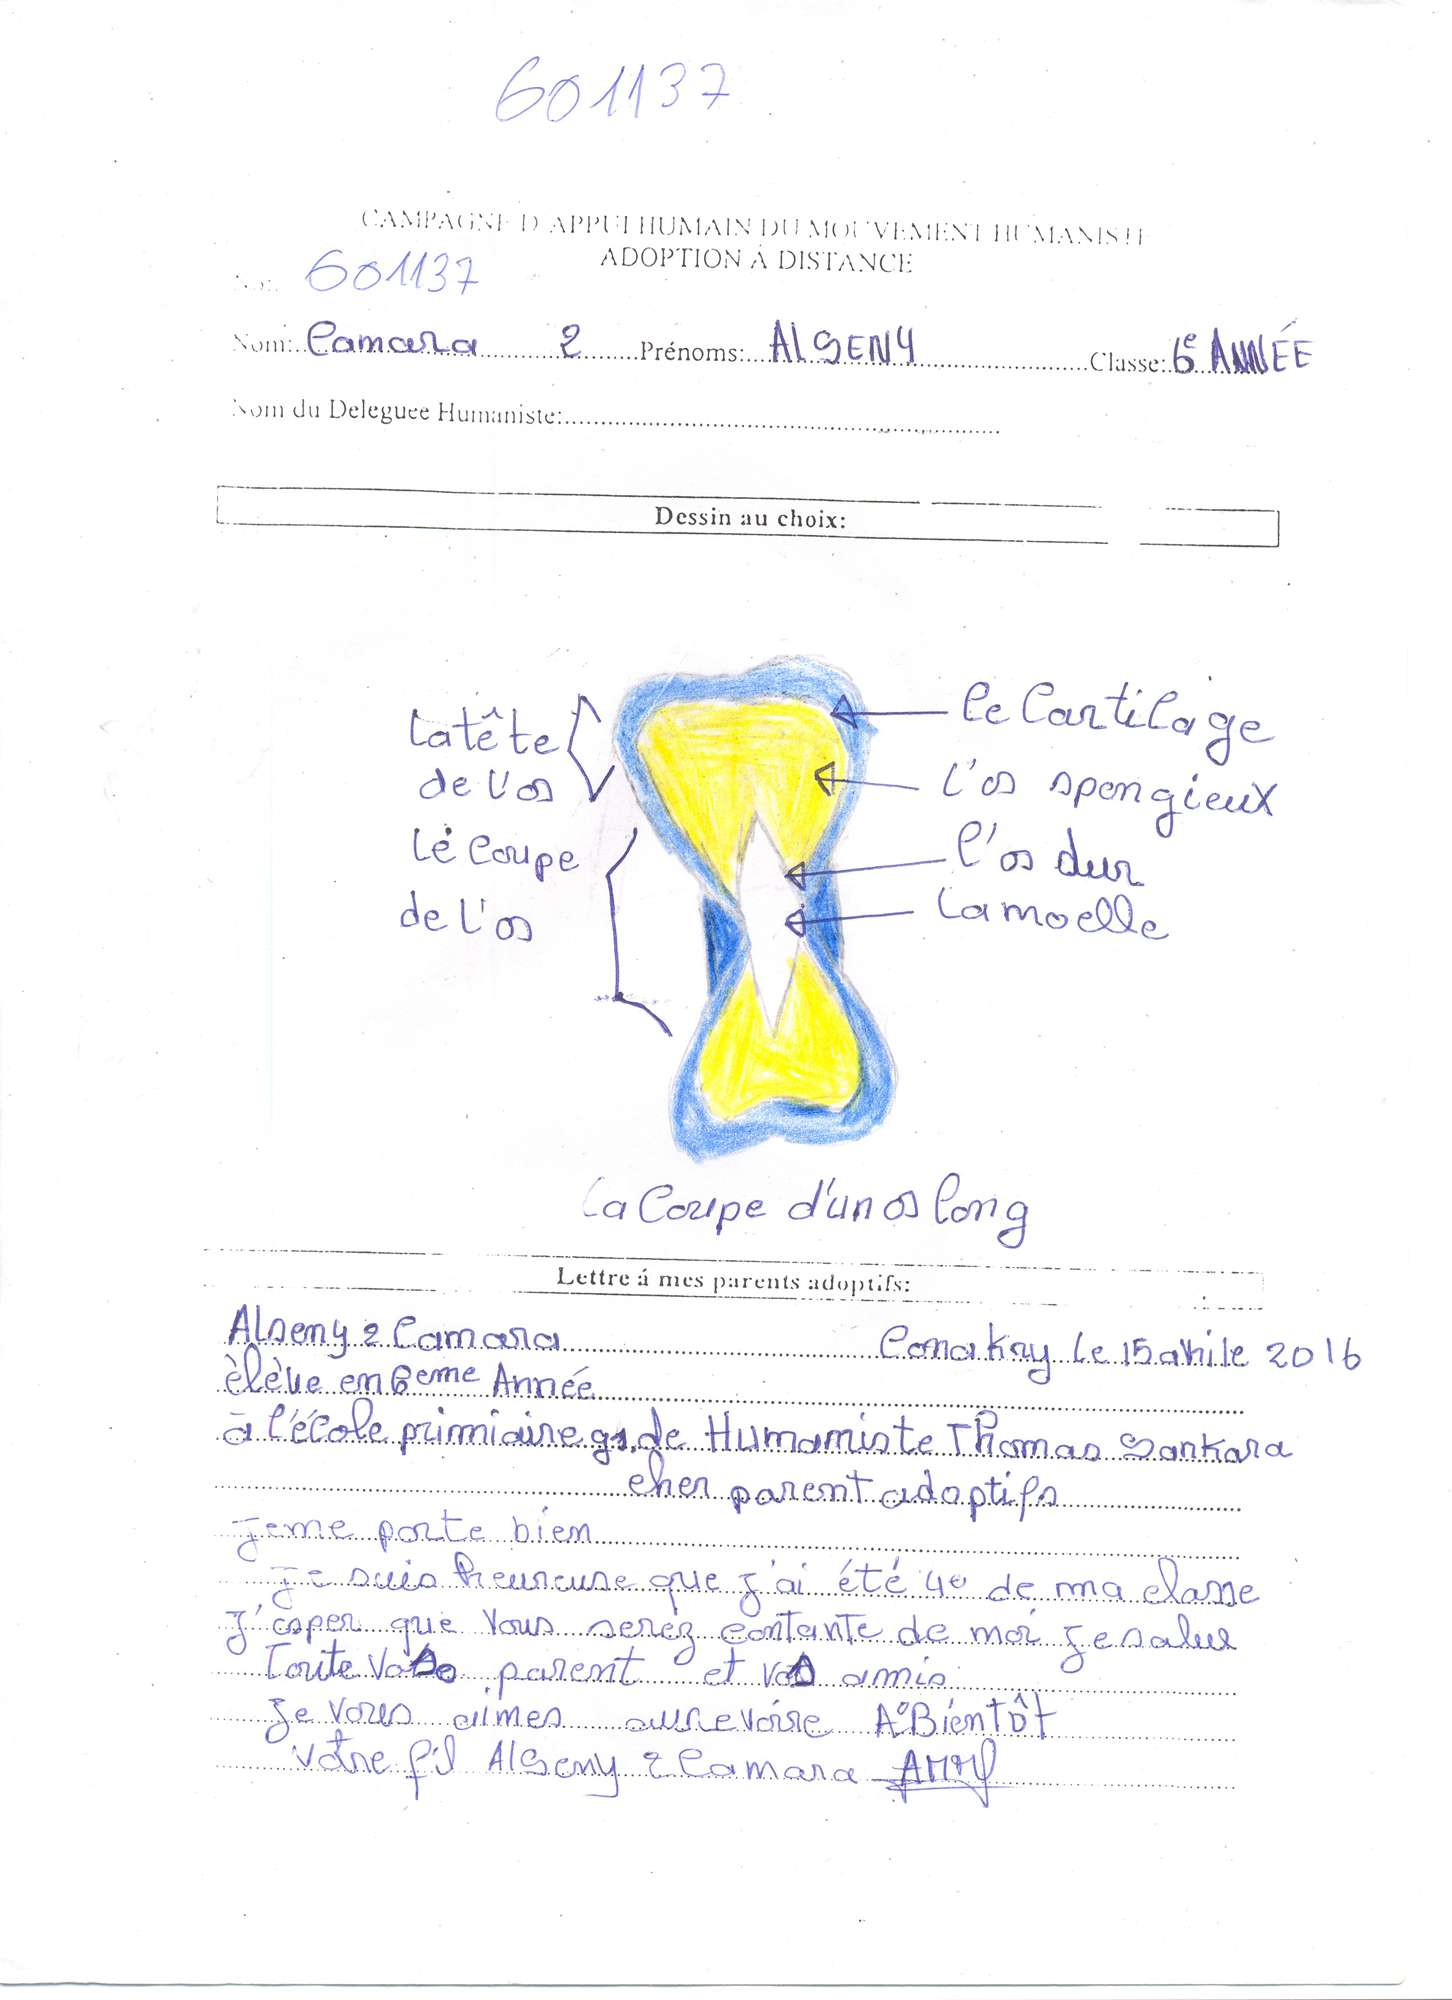 601137
CAMPAGNE D'APPUI HUMAIN DU MOUVEMENT HUMANISTE
ADOPTION À DISTANCE
601137
Nom: Camara 2 Prénoms: ALSENY Classe: 6e ANNÉE
Nom du Deleguee Humaniste:
Dessin au choix:
la tête
de l'os
le Cartilage
l'os spongieux
lé coupe
de l'os
l'os dur
la moelle
La Coupe d'un os long
Lettre á mes parents adoptifs:
Alseny 2 Camara Conakry le 15 avrile 2016
élève en 6eme Année
à l'école primiaire de Humamiste Thomas Sankara
cher parent adoptifs
Je me porte bien
Je suis heureuse que j'ai été 4e de ma classe
J'esper que vous seréz contante de moi je salue
toute vos parent et vos amis
Je vous aimes aurevoire A Bientôt
votre fil Alseny 2 Camara